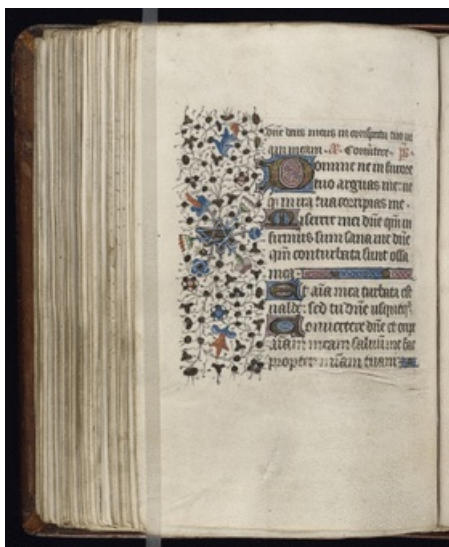 dñe deus meus in conspectu tuo ui
am meam. A. Conuertere. ps.
Domine ne in furore
tuo arguas me: ne
qz in ira tua corripias me.
Miserere mei dñe qm̄ in
firmus sum sana me dñe
qm̄ conturbata sunt ossa
mea.
Et aīa mea turbata est
ualde: sed tu dñe usquequo.
Conuertere dñe et eripe
aīam meam saluū me fac
propter m̄iam tuam